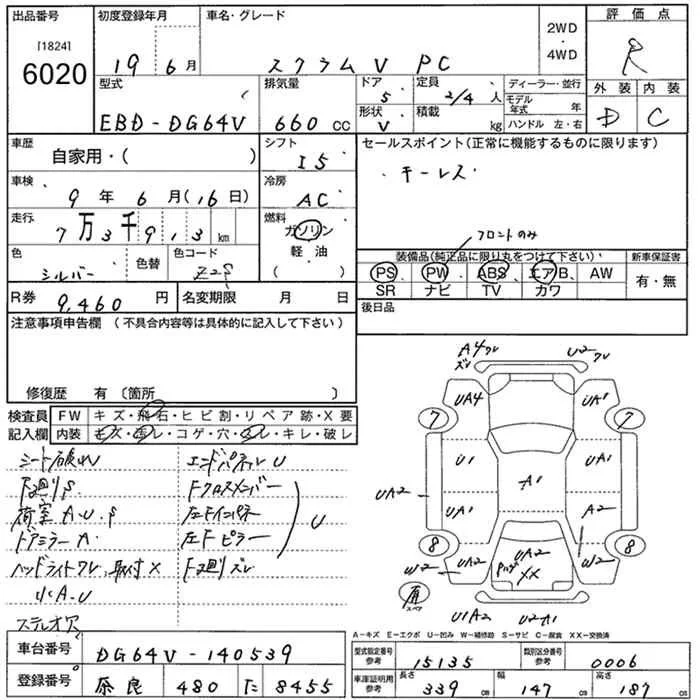 出品番号
[1824]
6020
初度登録年月
19 6月
車名・グレード
スクラムV PC
2WD
・
4WD
評価点
R
外装 内装
D C
型式
EBD-DG64V
排気量
660 CC
ドア
5
形状
V
定員
2/4 人
積載
kg
ディーラー・並行
モデル年式 年
ハンドル 左・右
車歴
自家用・( )
車検
9年 6月(16日)
走行
7万3千913 km
色
シルバー
色替
色コード
Z2S
シフト
I5
冷房
AC
燃料
ガソリン
軽・油
( )
セールスポイント(正常に機能するものに限ります)
・キーレス
フロントのみ
装備品(純正品に限り丸をつけて下さい)
PS PW ABS エアB AW
SR ナビ TV カワ
新車保証書
有・無
R券 9,460 円
名変期限 月 日
後日品
注意事項申告欄 (不具合内容等は具体的に記入して下さい)
修復歴 有 〔箇所 〕
検査員
記入欄
FW キズ・飛石・ヒビ割・リペア跡・X要
内装 キズ・汚レ・コゲ・穴・スレ・キレ・破レ
シート破れ
エンドパネルU
下廻りS
Fクロスメンバー
荷室A.U.S
左Fインパネ
U
ドアミラーA
左Fピラー
ヘッドライトワレ、取付X
F廻りズレ
小A.U
ステレオ欠
A4ワレ
ズレ
U2ワレ
UA4
UA1
7
7
U1
UA1
A1
UA2
UA1
A2
8
8
W2
UA2
UA2
XX
W2
UA2
スペア
U1A2
U2A1
A-キズ E-エクボ U-凹み W-補修跡 S-サビ C-腐食 XX-交換済
車台番号 DG64V-140539
登録番号 奈良 480 に 8455
型式指定番号
参考
15135
類別区分番号
参考
0006
車庫証明用
参考
長さ 339 cm
幅 147 cm
高さ 187 cm